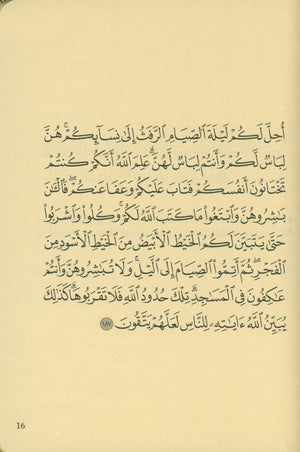 أُحِلَّ لَكُمْ لَيْلَةَ ٱلصِّيَامِ ٱلرَّفَثُ إِلَىٰ نِسَآئِكُمْۚ هُنَّ
لِبَاسٌ لَّكُمْ وَأَنتُمْ لِبَاسٌ لَّهُنَّۗ عَلِمَ ٱللَّهُ أَنَّكُمْ كُنتُمْ
تَخْتَانُونَ أَنفُسَكُمْ فَتَابَ عَلَيْكُمْ وَعَفَا عَنكُمْۖ فَٱلْـَٰٔنَ
بَـٰشِرُوهُنَّ وَٱبْتَغُوا۟ مَا كَتَبَ ٱللَّهُ لَكُمْۚ وَكُلُوا۟ وَٱشْرَبُوا۟
حَتَّىٰ يَتَبَيَّنَ لَكُمُ ٱلْخَيْطُ ٱلْأَبْيَضُ مِنَ ٱلْخَيْطِ ٱلْأَسْوَدِ مِنَ
ٱلْفَجْرِۖ ثُمَّ أَتِمُّوا۟ ٱلصِّيَامَ إِلَى ٱلَّيْلِۚ وَلَا تُبَـٰشِرُوهُنَّ وَأَنتُمْ
عَـٰكِفُونَ فِى ٱلْمَسَـٰجِدِۗ تِلْكَ حُدُودُ ٱللَّهِ فَلَا تَقْرَبُوهَاۗ كَذَٰلِكَ
يُبَيِّنُ ٱللَّهُ ءَايَـٰتِهِۦ لِلنَّاسِ لَعَلَّهُمْ يَتَّقُونَ ١٨٧
16